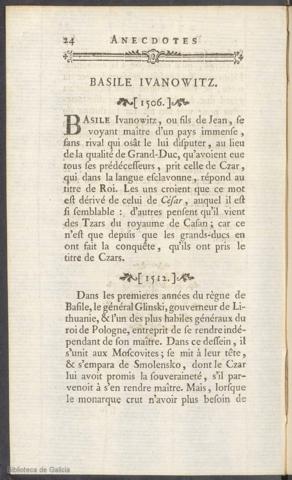 24 ANECDOTES
BASILE IVANOWITZ.
[1506.]
BASILE Ivanowitz, ou fils de Jean, se
voyant maître d'un pays immense,
sans rival qui osât le lui disputer, au lieu
de la qualité de Grand-Duc, qu'avoient eue
tous ses prédécesseurs, prit celle de Czar,
qui dans la langue esclavonne, répond au
titre de Roi. Les uns croient que ce mot
est dérivé de celui de César, auquel il est
si semblable : d'autres pensent qu'il vient
des Tzars du royaume de Casan ; car ce
n'est que depuis que les grands-ducs en
ont fait la conquête, qu'ils ont pris le
titre de Czars.
[1512.]
Dans les premieres années du règne de
Basile, le général Glinski, gouverneur de Li-
thuanie, & l'un des plus habiles généraux du
roi de Pologne, entreprit de se rendre indé-
pendant de son maître. Dans ce dessein, il
s'unit aux Moscovites ; se mit à leur tête,
& s'empara de Smolensko, dont le Czar
lui avoit promis la souveraineté, s'il par-
venoit à s'en rendre maître. Mais, lorsque
le monarque crut n'avoir plus besoin de
Biblioteca de Galicia